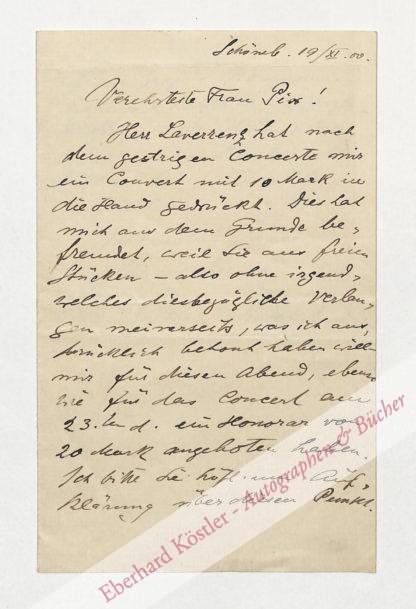 Schöneb. 19/XI.00.
Verehrteste Frau Pix!
Herr Laverrenz hat nach
dem gestrigen Concerte mir
ein Couvert mit 10 Mark in
die Hand gedrückt. Dies hat
mich aus dem Grunde be-
fremdet, weil Sie aus freien
Stücken – also ohne irgend-
welches diesbezügliche Verlan-
gen meinerseits, was ich aus-
drücklich betont haben will –
mir für diesen Abend, eben
wie für das Concert am
23. d. ein Honorar von
20 Mark angeboten haben.
Ich bitte Sie höfl. um Auf-
klärung über diesen Punkt.
Eberhard Köstler - Autographen & Bücher